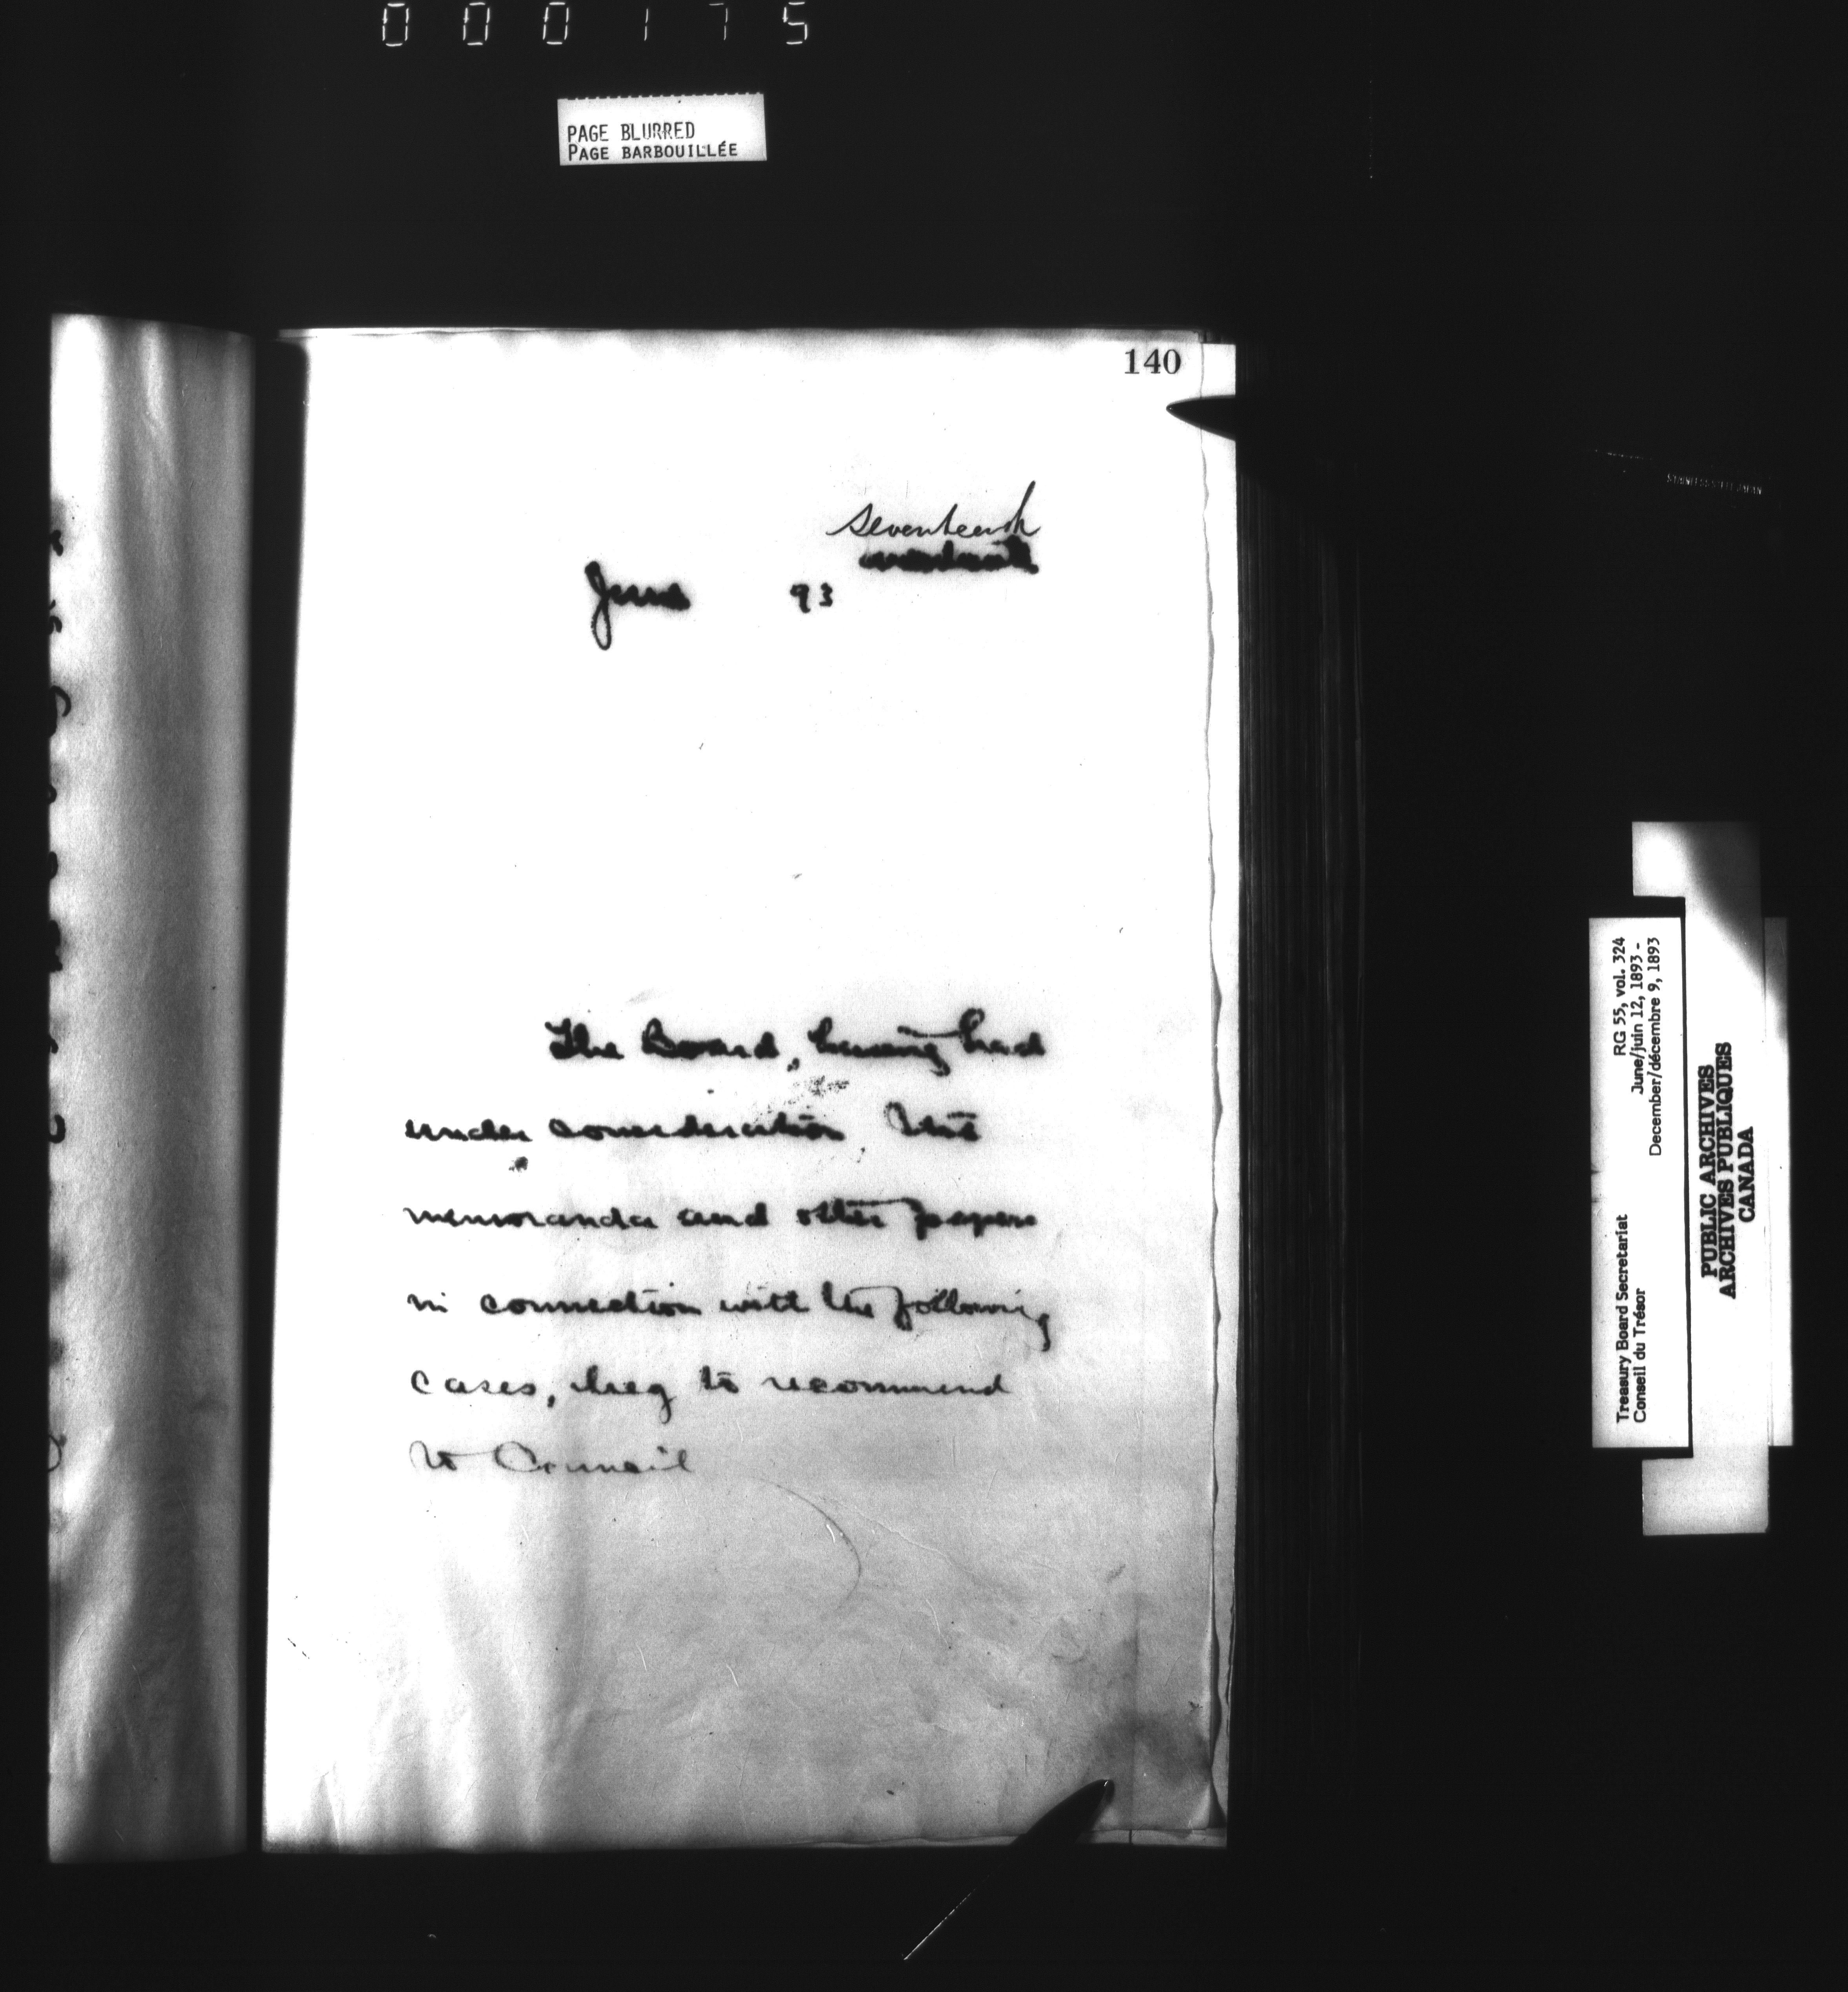 000175
PAGE BLURRED
PAGE BARBOUILLÉE
140
seventeenth
June 93
The Board, having had
under consideration the
memoranda and other papers
in connection with the following
cases, beg to recommend
to Council
RG 55, vol. 324
June/juin 12, 1893 -
December/décembre 9, 1893
Treasury Board Secretariat
Conseil du Trésor
PUBLIC ARCHIVES
ARCHIVES PUBLIQUES
CANADA